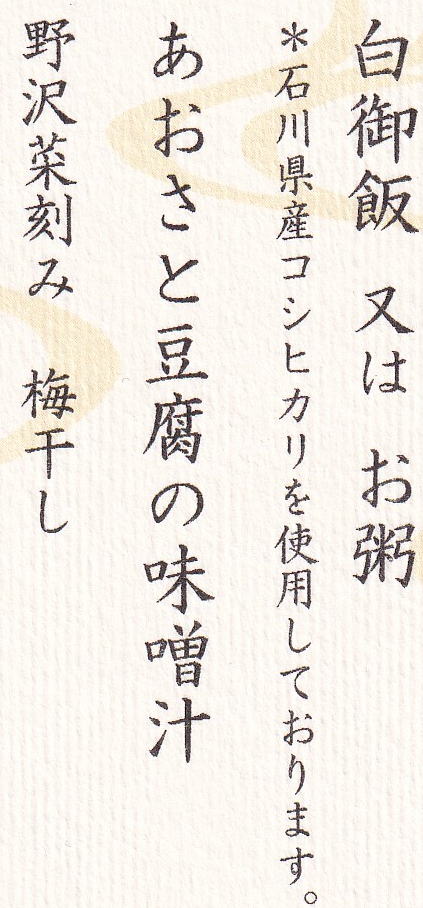 白御飯　又は　お粥
＊石川県産コシヒカリを使用しております。
あおさと豆腐の味噌汁
野沢菜刻み　梅干し